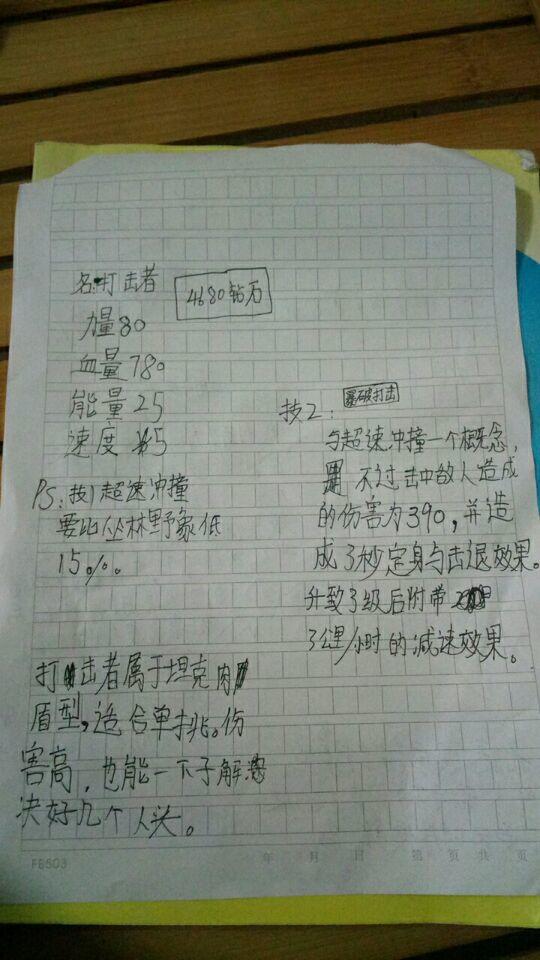 名:打击者
4680钻石
力量80
血量780
能量25
速度 5
PS:技1超速冲撞
要比丛林野象低
15%。
技2:
爆破打击
与超速冲撞一个概念,
不过击中敌人造成
的伤害为390,并造
成3秒定身与击退效果。
升致3级后附带
3公里/小时的减速效果。
打击者属于坦克肉
盾型,适合单挑。伤
害高,也能一下子解
决好几个人头。
FB503 年 月 日 第 页 共 页